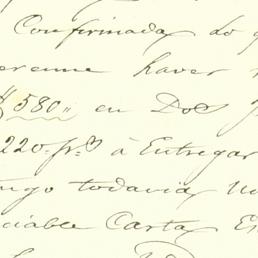 Confirmada do q
haver
$ 580" en Dos
220. fr.s á Entregar
ngo todavia no
ciable Carta, Es